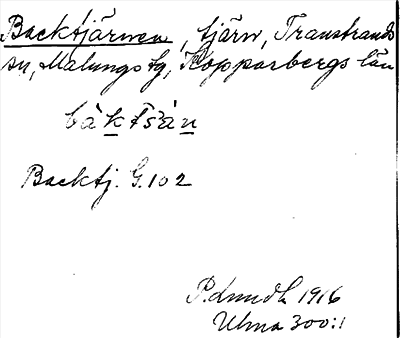 Backtjärnen, tjärn, Transtrands
sn, Malungs tg, Kopparbergs län
bàktšä̀n
Backtj. G. 102
P.Lundh 1916
Ulma 300:1